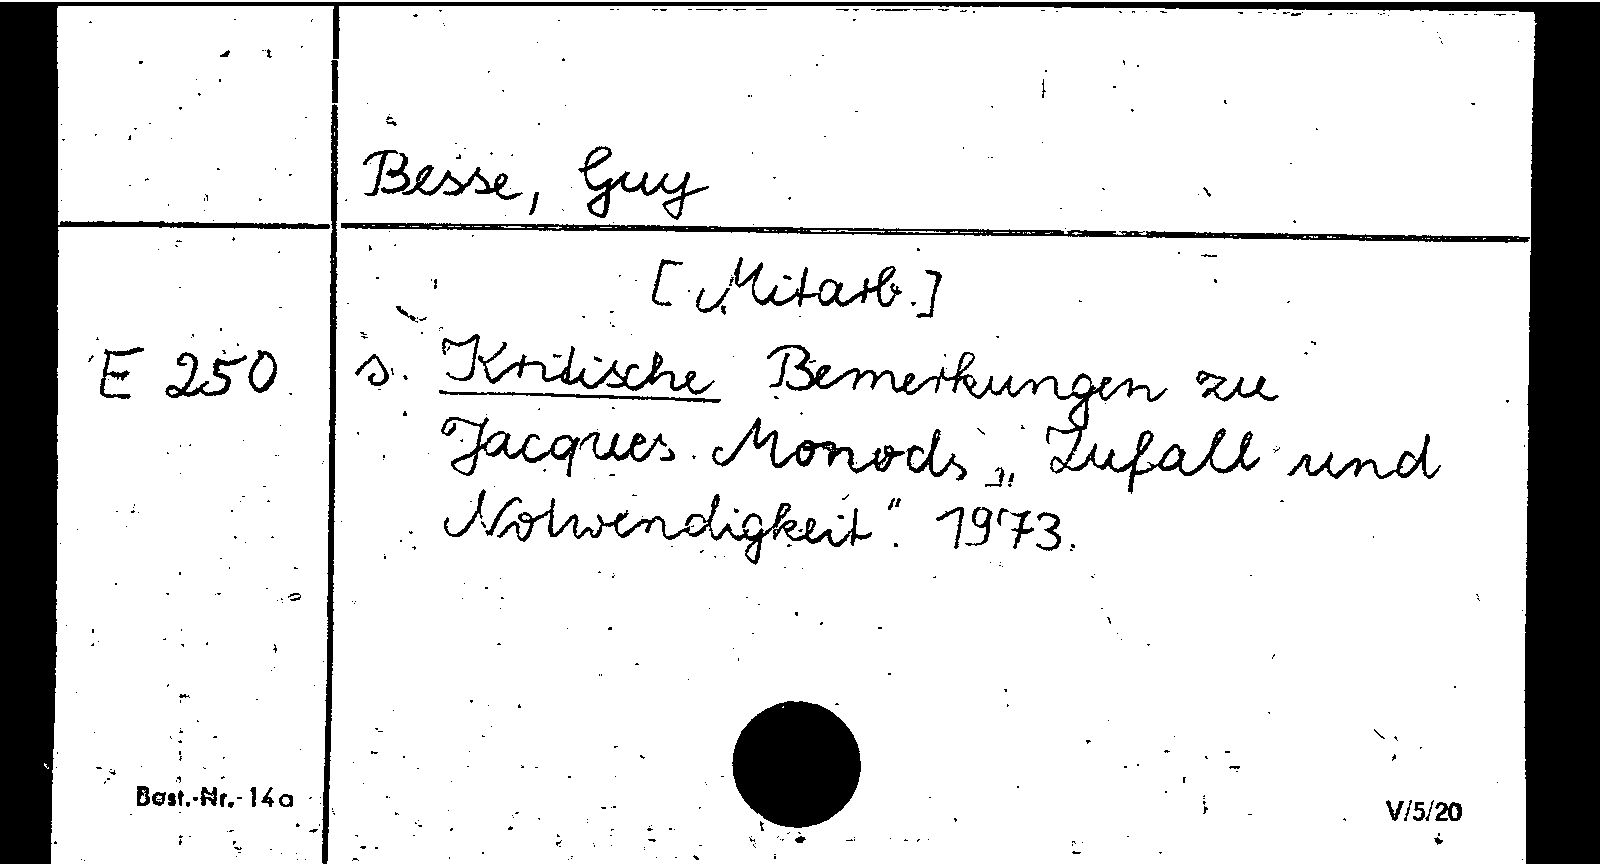 Besse, Guy
[Mitarb.]
E 250 s. Kritische Bemerkungen zu
Jacques Monods „Zufall und
Notwendigkeit". 1973.
Best.-Nr. 14a
V/5/20